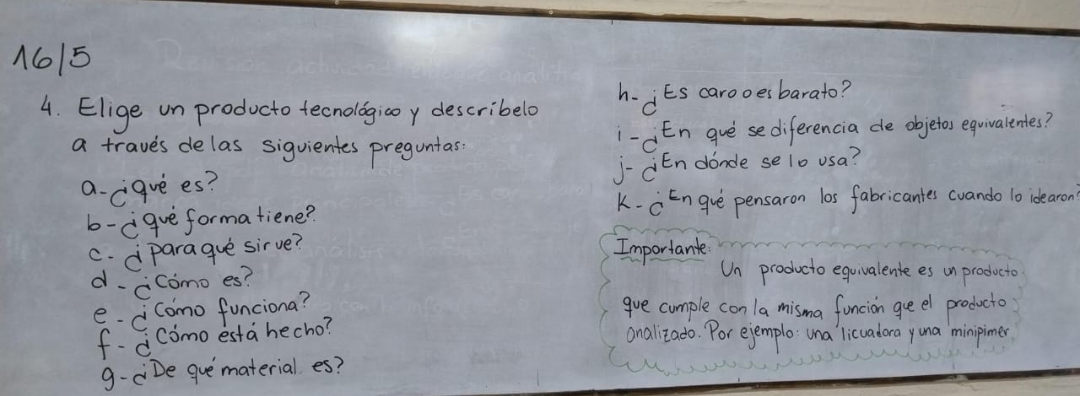 16/5
4. Elige un producto tecnológico y descríbelo
a través de las siguientes preguntas:
a-¿qué es?
b-¿qué forma tiene?
c-¿para qué sirve?
d-¿Cómo es?
e-¿Cómo funciona?
f-¿Cómo está hecho?
g-¿De qué material es?
h-¿Es caro o es barato?
i-¿En qué se diferencia de objetos equivalentes?
j-¿En dónde se lo usa?
K-¿En qué pensaron los fabricantes cuando lo idearon?
Importante:
Un producto equivalente es un producto
que cumple con la misma función que el producto
analizado. Por ejemplo: una licuadora y una minipimer.